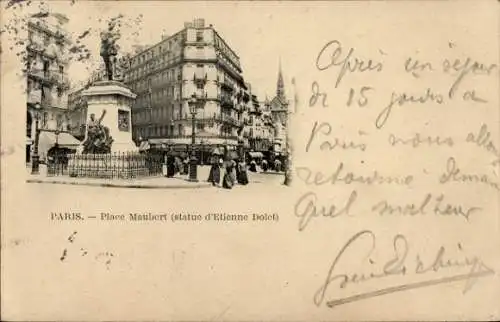 Après un séjour
de 15 jours à
Paris nous allons
retourne demain
Quel malheur
PARIS. — Place Maubert (statue d'Etienne Dolet)